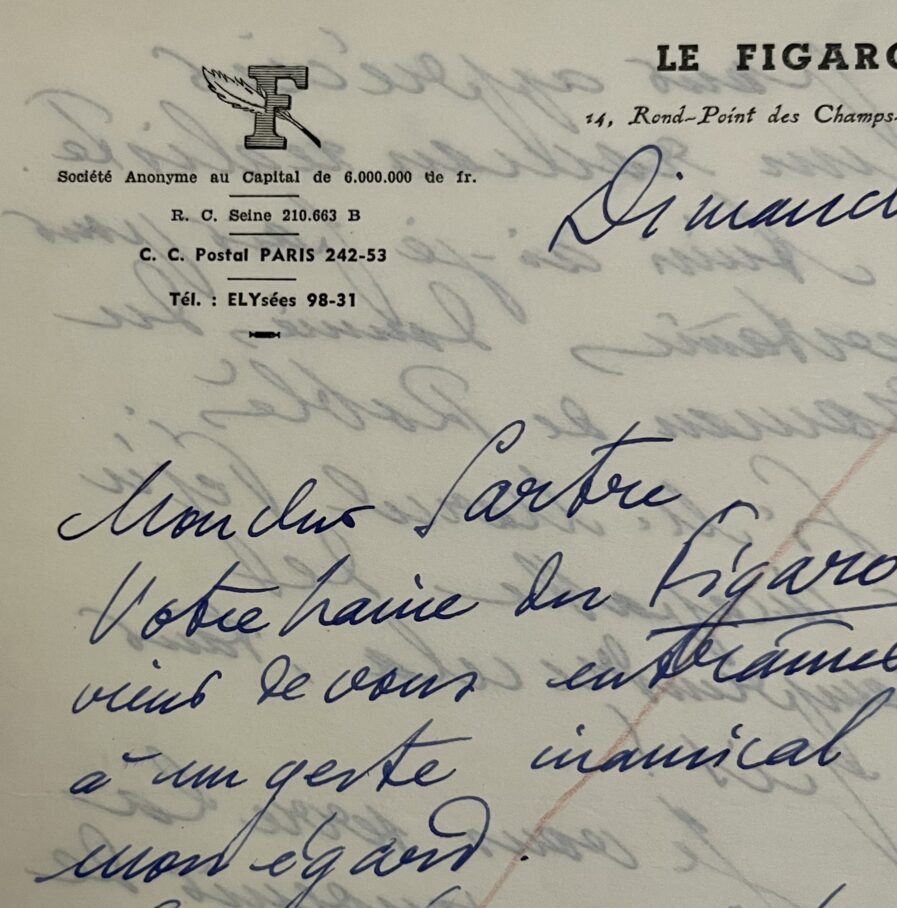 F
LE FIGARO
14, Rond-Point des Champs-
Société Anonyme au Capital de 6.000.000 de fr.
R. C. Seine 210.663 B
C. C. Postal PARIS 242-53
Tél. : ELYsées 98-31
Dimanc
Monsieur Sartre
Votre haine du Figaro
vient de vous entraîner
à un geste inamical
mon égard.